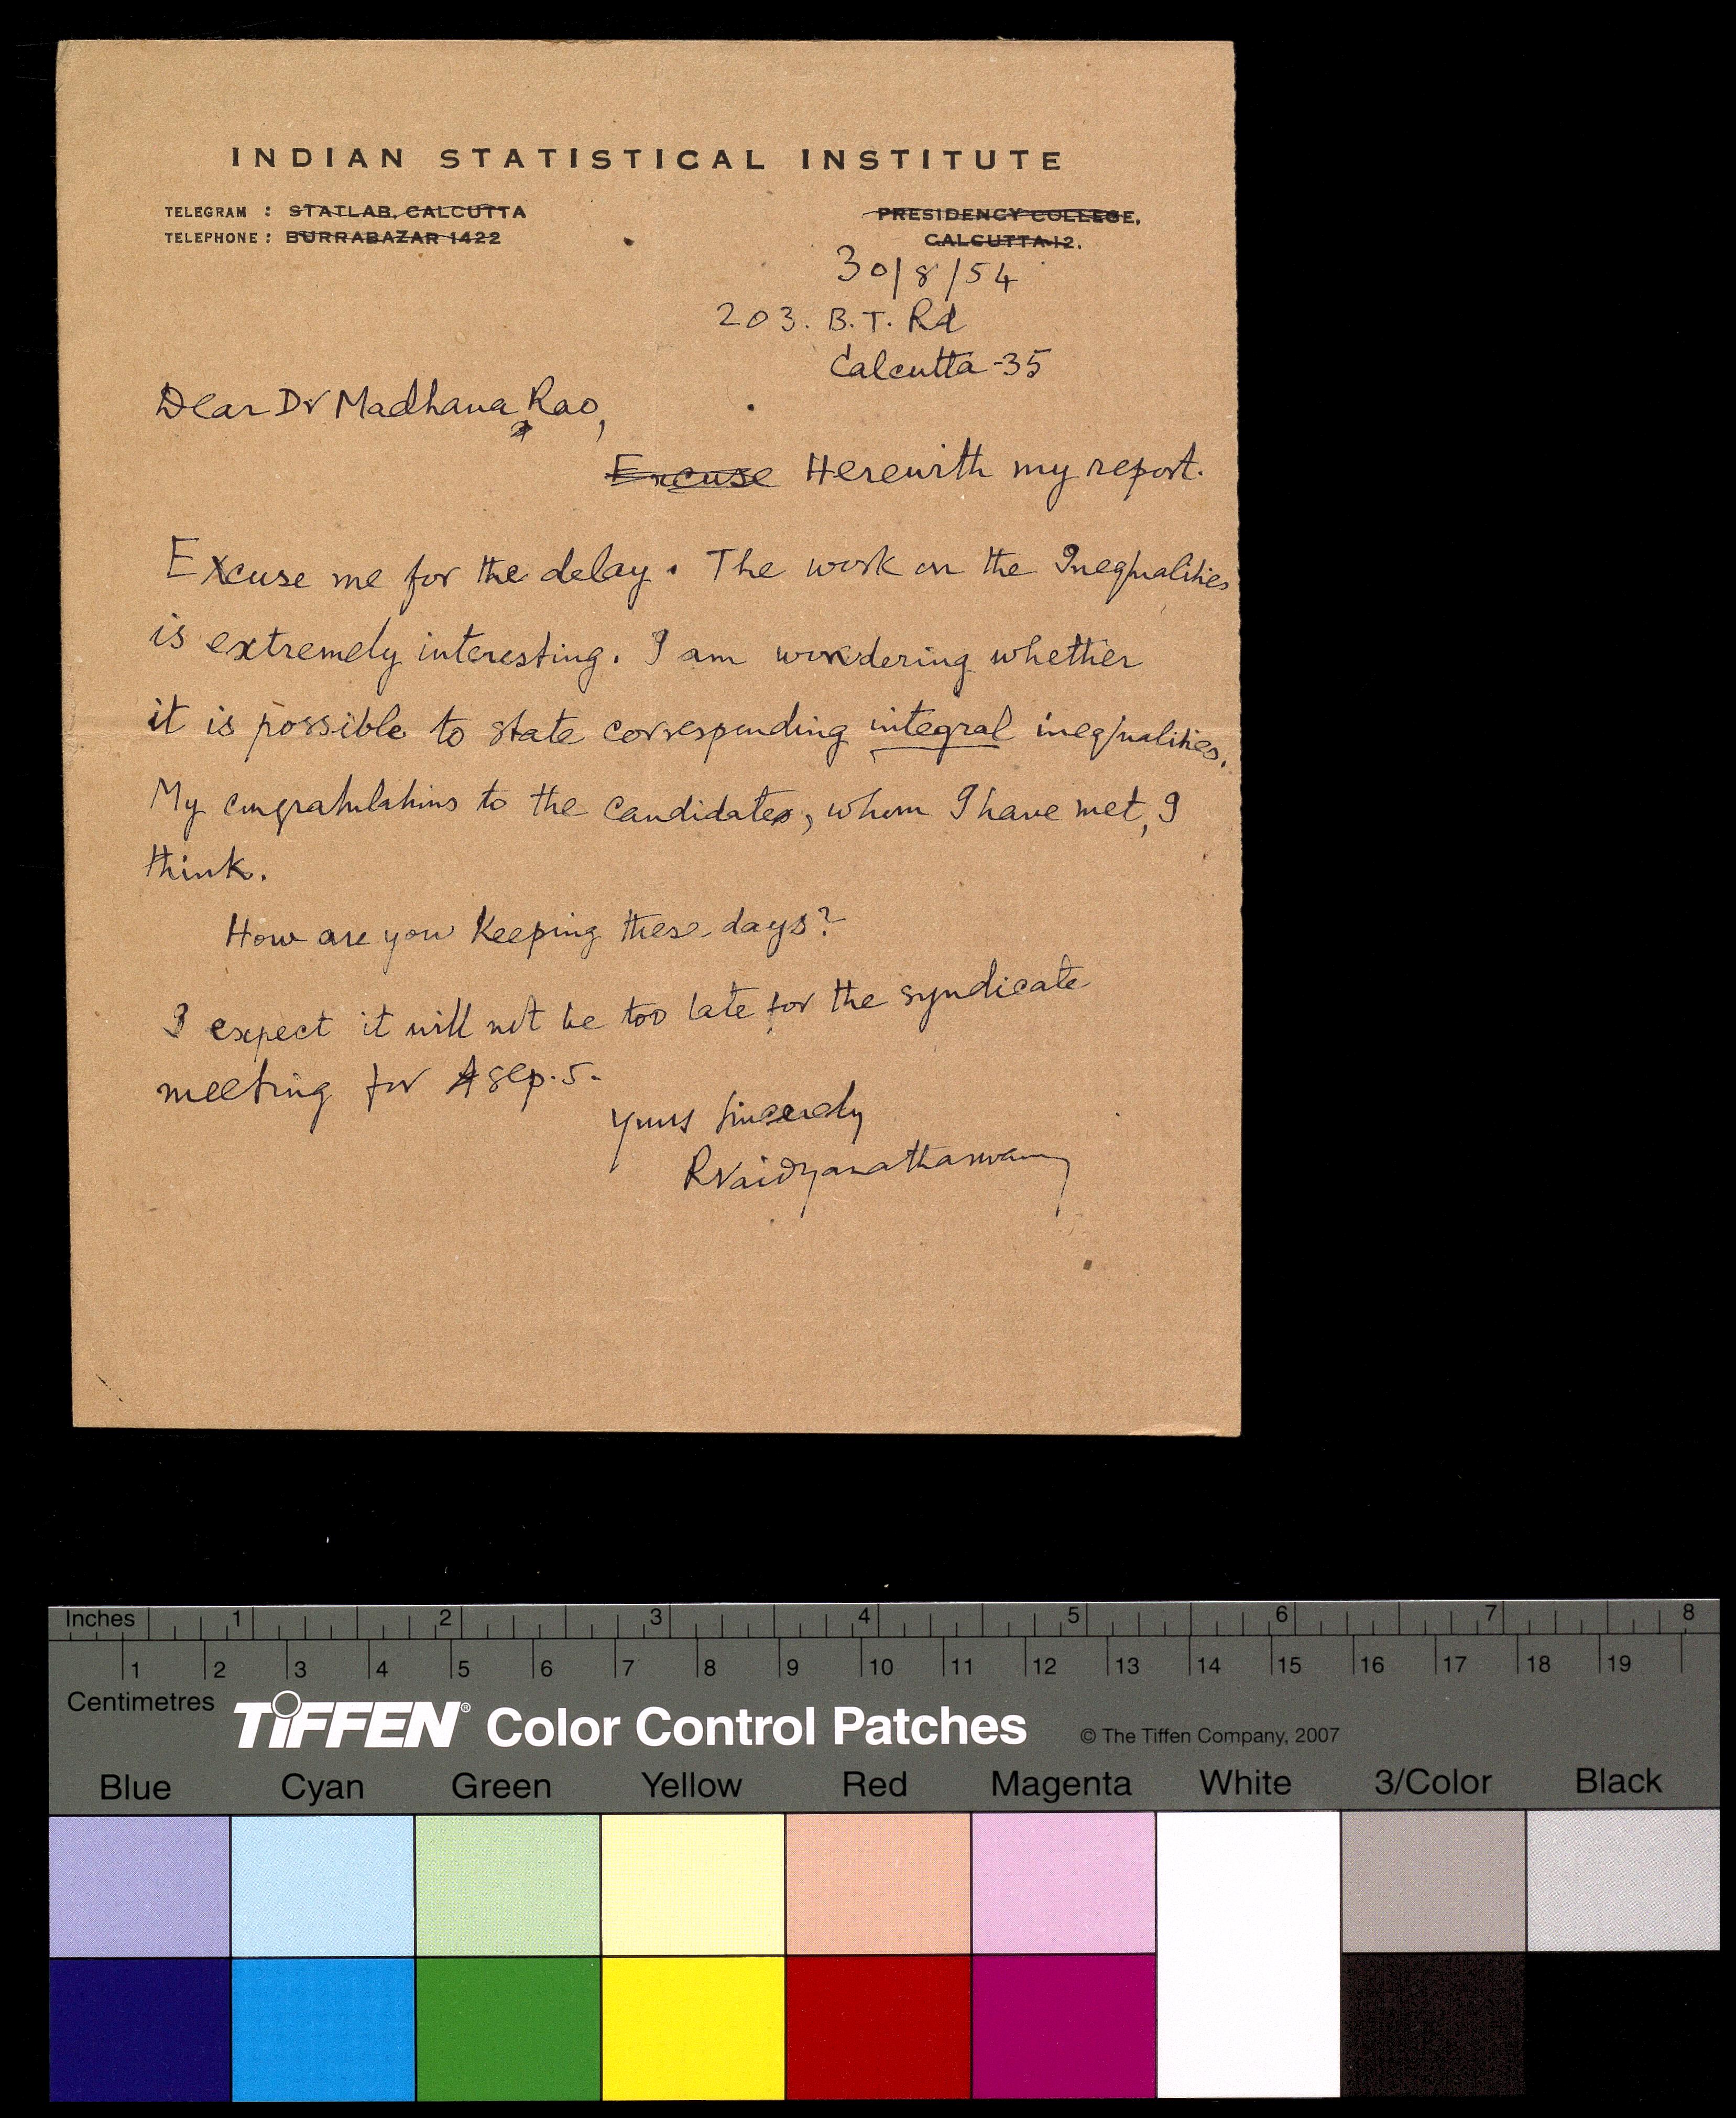 INDIAN STATISTICAL INSTITUTE
TELEGRAM : STATLAB, CALCUTTA
TELEPHONE : BURRABAZAR 1422
PRESIDENCY COLLEGE,
CALCUTTA-12.
30/8/54
203. B.T. Rd
Calcutta-35
Dear Dr Madhava Rao,
Excuse Herewith my report.
Excuse me for the delay. The work on the Inequalities
is extremely interesting. I am wondering whether
it is possible to state corresponding integral inequalities.
My congratulations to the candidates, whom I have met, I
think.
How are you keeping these days?
I expect it will not be too late for the syndicate
meeting for Sep. 5.
Yours sincerely
R Vaidyanathaswamy
Inches 1 2 3 4 5 6 7 8
1 2 3 4 5 6 7 8 9 10 11 12 13 14 15 16 17 18 19
Centimetres
TIFFEN® Color Control Patches © The Tiffen Company, 2007
Blue Cyan Green Yellow Red Magenta White 3/Color Black